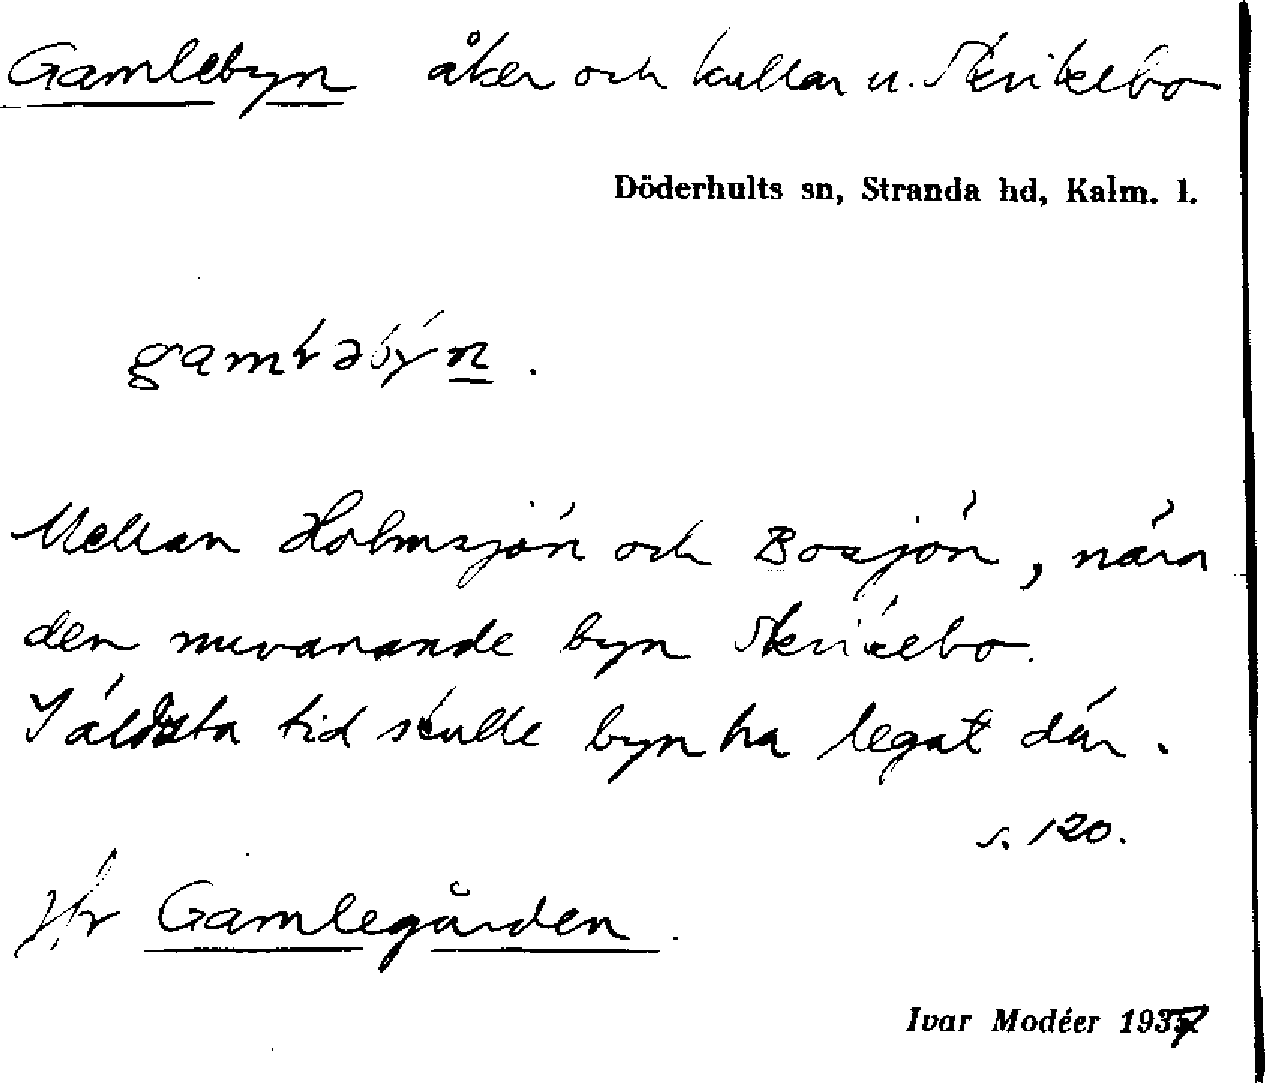 Gamlebyn åker och kullar u. Skrikebo
Döderhults sn, Stranda hd, Kalm. l.
Mellan Holmsjön och Bosjön, nära
den nuvarande byn Skrikebo.
I äldsta tid skulle byn ha legat där.
s. 120.
Jfr Gamlegården.
Ivar Modéer 1937